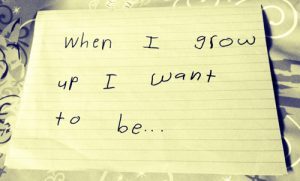 When I grow
up I want
to be...